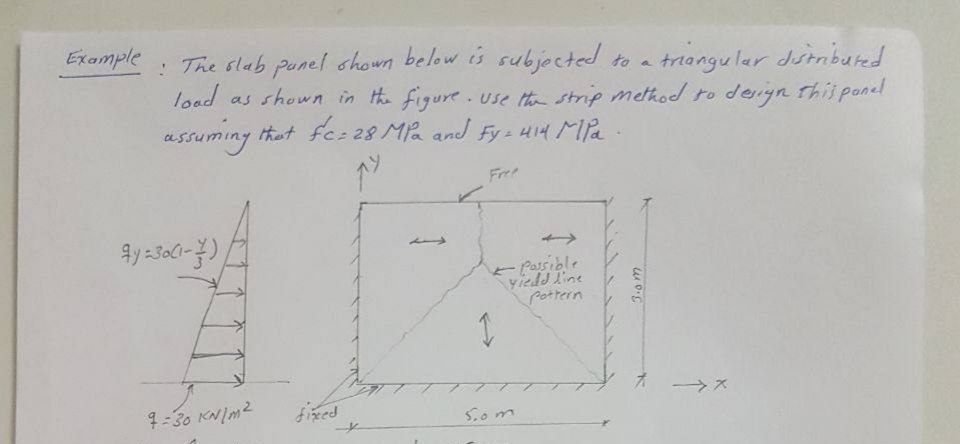 Example : The slab panel shown below is subjected to a triangular distributed
load as shown in the figure. use the strip method to design this panel
assuming that f'c = 28 MPa and Fy = 414 MPa.
Y
Free
qy = 30(1-y/3)
possible
yield line
pattern
3.0 m
X
q = 30 KN/m2
fixed
5.0 m